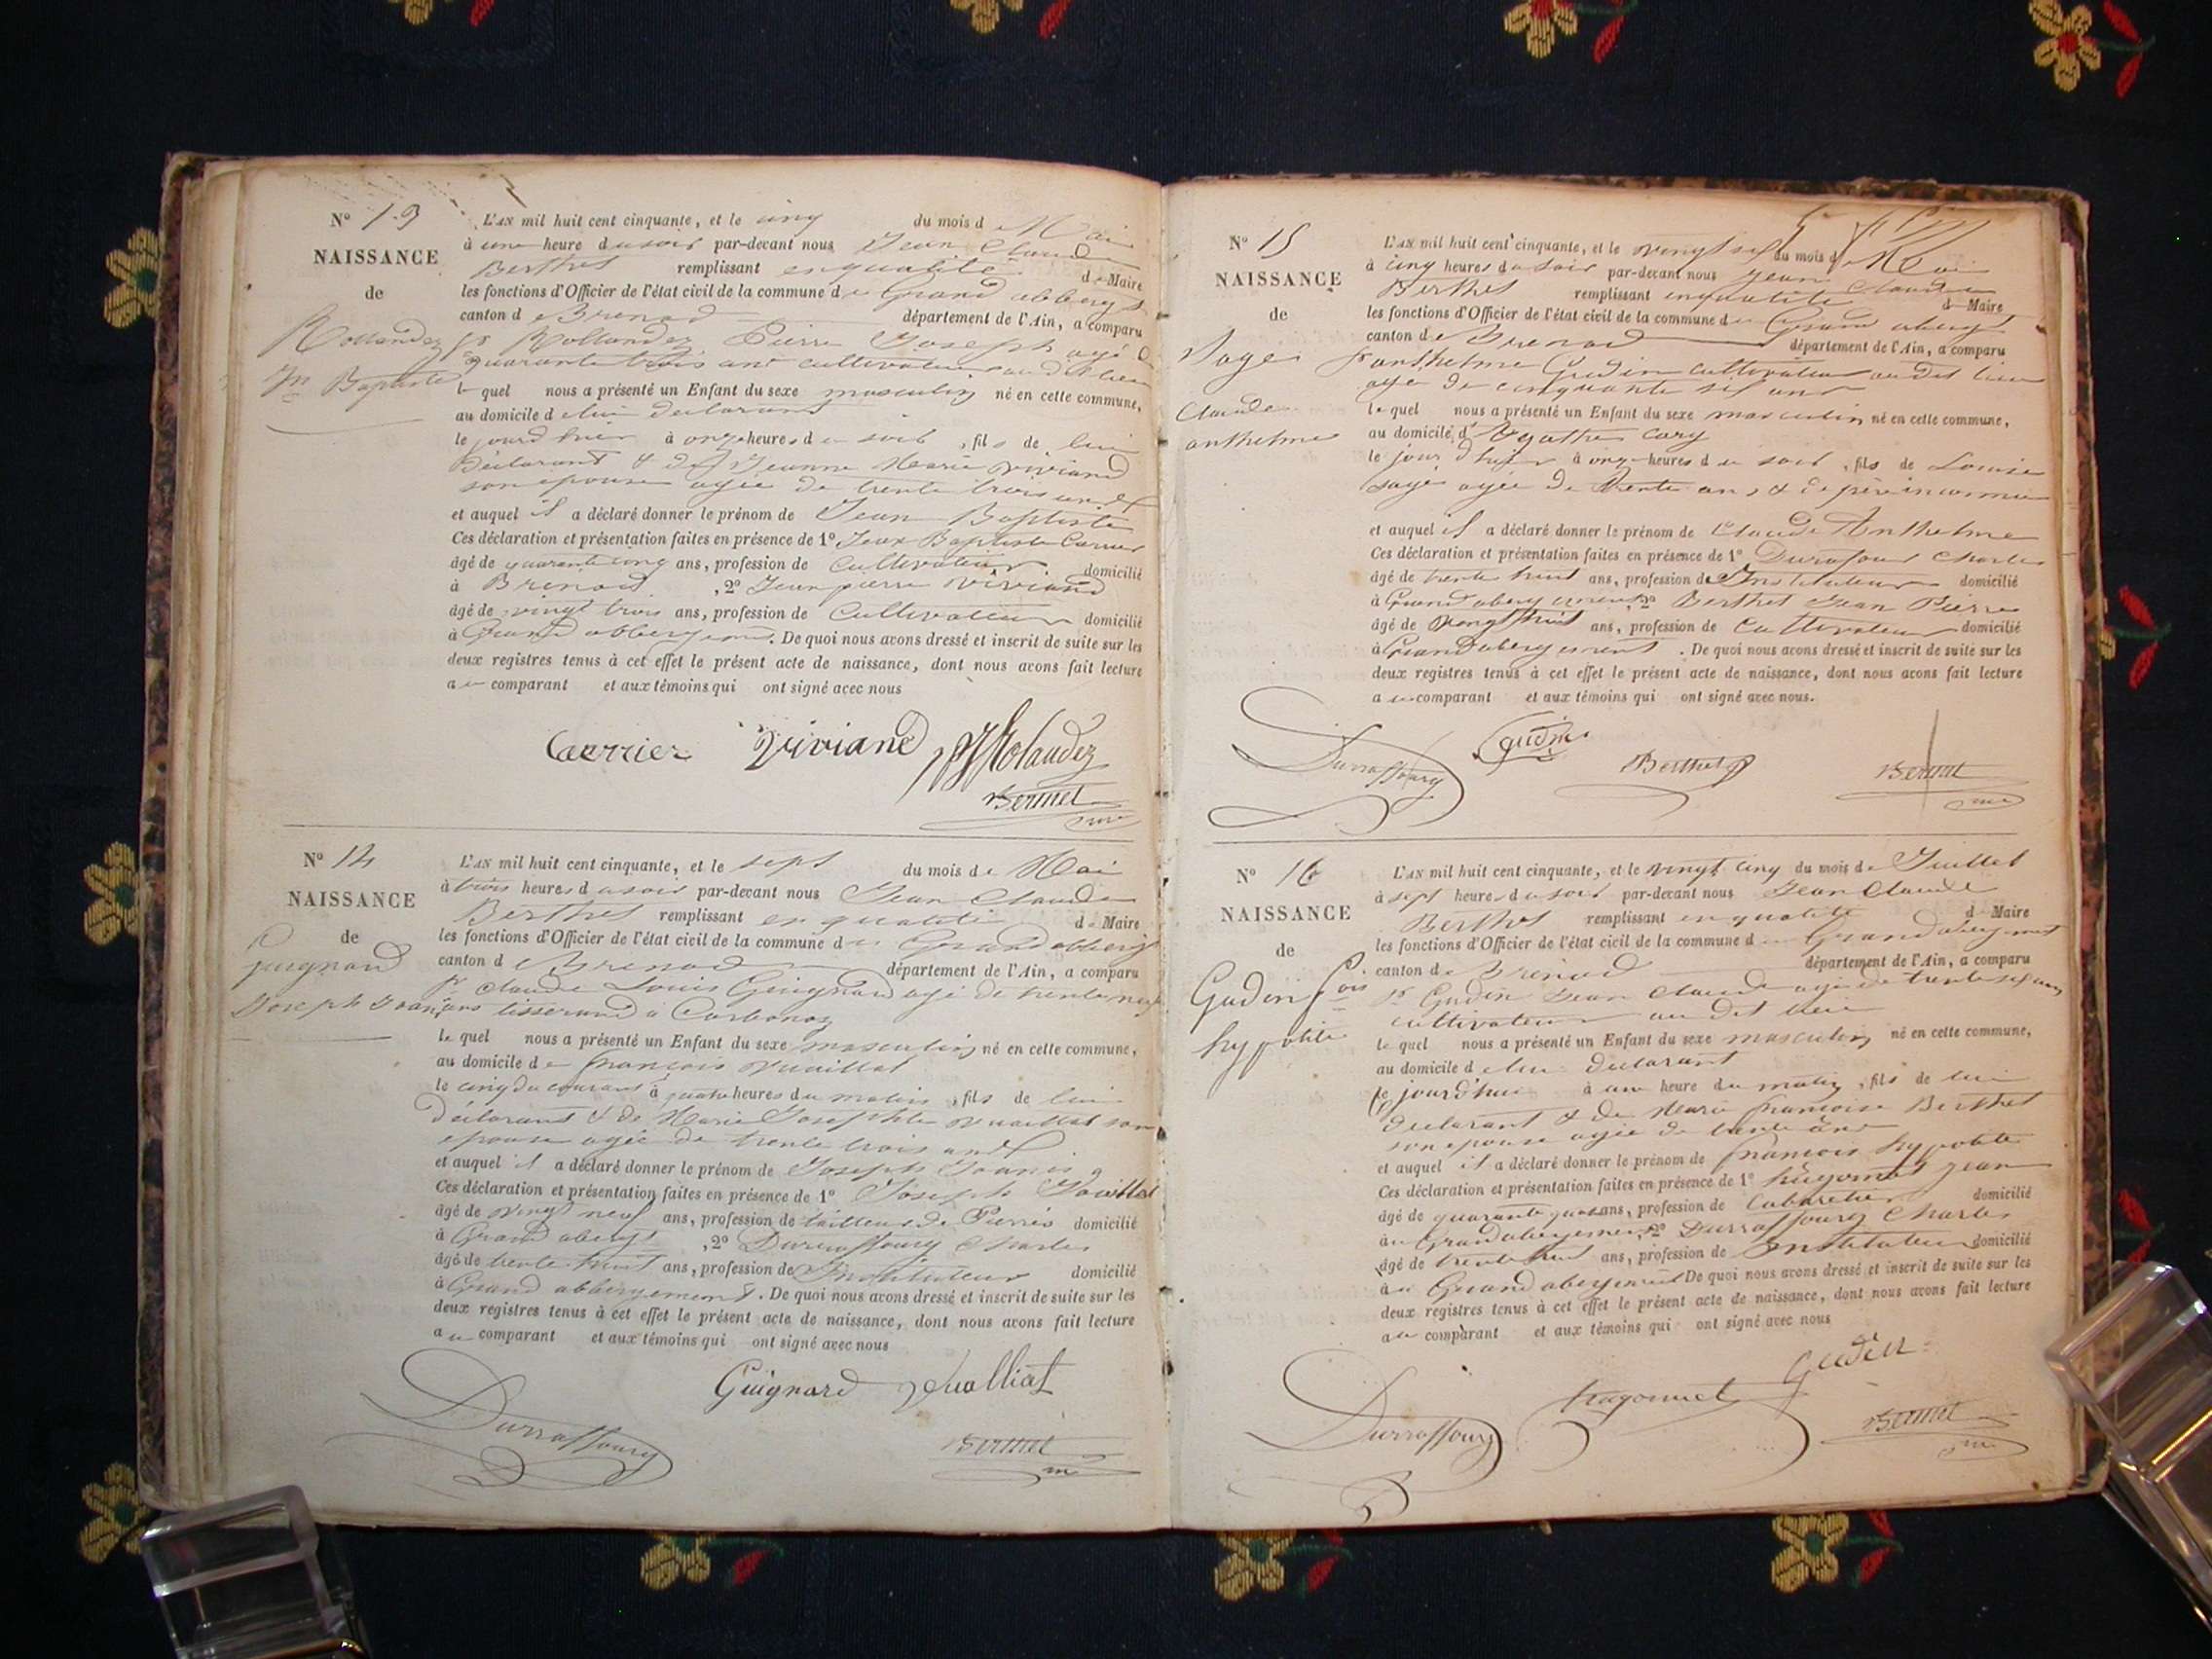 N° 13
NAISSANCE
de
Rollandez
Jn Baptiste
L'AN mil huit cent cinquante, et le cinq du mois de Mai
à une heure du soir par-devant nous Jean Claude
Berthet remplissant en qualité de Maire
les fonctions d'Officier de l'état civil de la commune du Grand abbergt
canton de Brenod département de l'Ain, a comparu
sr Rollandez Pierre Joseph agé de
quarante trois ans cultivateur au dit lieu
lequel nous a présenté un Enfant du sexe masculin né en cette commune,
au domicile de lui déclarant
le jourd'hier à onze heures du soir, fils de lui
Déclarant & de Jeanne Marie Viviand
son epouse agée de trente trois ans
et auquel il a déclaré donner le prénom de Jean Baptiste
Ces déclaration et présentation faites en présence de 1° Jean Baptiste Carrier
âgé de quarante cinq ans, profession de Cultivateur domicilié
à Brenod, 2° Jean pierre Viviand
âgé de vingt trois ans, profession de Cultivateur domicilié
à Grand abbergement. De quoi nous avons dressé et inscrit de suite sur les
deux registres tenus à cet effet le présent acte de naissance, dont nous avons fait lecture
au comparant et aux témoins qui ont signé avec nous
Carrier Viviand Rolandez
Berthet
me
N° 14
NAISSANCE
de
Guignard
Joseph Joanis
L'AN mil huit cent cinquante, et le sept du mois de Mai
à trois heures du soir par-devant nous Jean Claude
Berthet remplissant en qualité de Maire
les fonctions d'Officier de l'état civil de la commune du Grand abbergt
canton de Brenod département de l'Ain, a comparu
sr Claude Louis Guignard agé de trente neuf
ans tisserand à Corbonoz
lequel nous a présenté un Enfant du sexe masculin né en cette commune,
au domicile de francois Vuaillat
le cinq du courant à quatre heures du matin, fils de lui
Déclarant & de Marie Josephte Vuaillat son
epouse agée de trente trois ans
et auquel il a déclaré donner le prénom de Joseph Joanis
Ces déclaration et présentation faites en présence de 1° Joseph
âgé de vingt neuf ans, profession de tailleur de Pierres domicilié
à Grand abergt, 2° Durraffourg Charles
âgé de trente huit ans, profession de Instituteur domicilié
à Grand abbergement. De quoi nous avons dressé et inscrit de suite sur les
deux registres tenus à cet effet le présent acte de naissance, dont nous avons fait lecture
au comparant et aux témoins qui ont signé avec nous
Guignard Vualliat
Durraffourg
Berthet
me
N° 15
NAISSANCE
de
Claude
anthelme
L'AN mil huit cent cinquante, et le vingt sept du mois de Mai
à cinq heures du soir par-devant nous Jean Claude
Berthet remplissant en qualité de Maire
les fonctions d'Officier de l'état civil de la commune du Grand abergt
canton de Brenod département de l'Ain, a comparu
sr anthelme Gudin cultivateur au dit lieu
agé de cinquante six ans
lequel nous a présenté un Enfant du sexe masculin né en cette commune,
au domicile d'Agathe Cary
le jour d'hier à onze heures du soir, fils de Louise
agée de trente ans & de père inconnu
et auquel il a déclaré donner le prénom de Claude Anthelme
Ces déclaration et présentation faites en présence de 1° Durafour Charles
âgé de trente huit ans, profession d'Instituteur domicilié
à Grand abergement, 2° Berthet Jean Pierre
âgé de vingt huit ans, profession de Cultivateur domicilié
à Grand abergement. De quoi nous avons dressé et inscrit de suite sur les
deux registres tenus à cet effet le présent acte de naissance, dont nous avons fait lecture
au comparant et aux témoins qui ont signé avec nous.
Durraffourg Gudin
Berthet Berthet
me
N° 16
NAISSANCE
de
Gudin fcois
hypolite
L'AN mil huit cent cinquante, et le vingt cinq du mois de Juillet
à sept heures du soir par-devant nous Jean Claude
Berthet remplissant en qualité de Maire
les fonctions d'Officier de l'état civil de la commune du Grand abergement
canton de Brenod département de l'Ain, a comparu
sr Gudin Jean Claude agé de trente six ans
cultivateur au dit lieu
lequel nous a présenté un Enfant du sexe masculin né en cette commune,
au domicile de lui Déclarant
le jourd'hui à une heure du matin, fils de lui
declarant & de Marie francoise Berthet
son epouse agée de trente ans
et auquel il a déclaré donner le prénom de francois hypolite
Ces déclaration et présentation faites en présence de 1° hugonnet Jean
âgé de quarante quatre ans, profession de Cabaretier domicilié
au Grand abergement, 2° Durraffourg Charles
âgé de trente huit ans, profession de Instituteur domicilié
au Grand abergement De quoi nous avons dressé et inscrit de suite sur les
deux registres tenus à cet effet le présent acte de naissance, dont nous avons fait lecture
au comparant et aux témoins qui ont signé avec nous
Gudin
Durraffourg hugonnet
Berthet
me